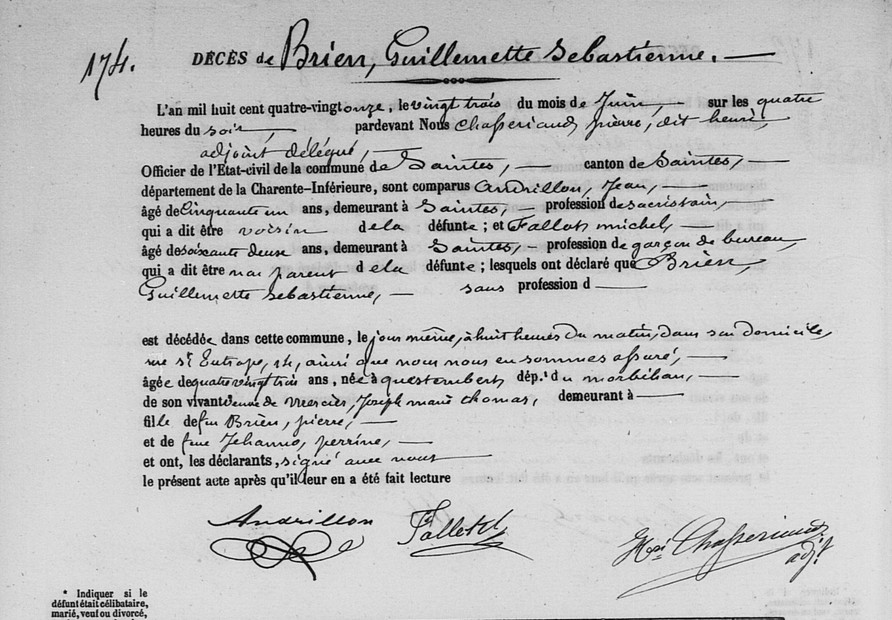 174.
DÉCÈS de Brien, Guillemette Sebastienne.
L'an mil huit cent quatre-vingt onze, le vingt trois du mois de Juin, sur les quatre
heures du soir, pardevant Nous Chasseriaud, pierre, dit henri,
adjoint délégué,
Officier de l'État-civil de la commune de Saintes, canton de Saintes,
département de la Charente-Inférieure, sont comparus Andrillon, Jean,
âgé de Cinquante un ans, demeurant à Saintes, profession de sacristain,
qui a dit être voisin de la défunte ; et Fallot, michel,
âgé de soixante deux ans, demeurant à Saintes, profession de garçon de bureau,
qui a dit être non parent de la défunte ; lesquels ont déclaré que Brien,
Guillemette Sebastienne, sans profession d
est décédée dans cette commune, le jour même, à huit heures du matin, dans son domicile,
rue St Eutrope, 14, ainsi que nous nous en sommes assuré,
âgée de quatre vingt trois ans, née à questembert, dép.t du morbihan,
de son vivant veuve de Mercier, Joseph marie thomas, demeurant à
fille de feu Brien, pierre,
et de feue Jehanno, perrine,
et ont, les déclarants, signé avec nous
le présent acte après qu'il leur en a été fait lecture
Andrillon Fallot Hri Chasseriaud
adjt
* Indiquer si le
défunt était célibataire,
marié, veuf ou divorcé,